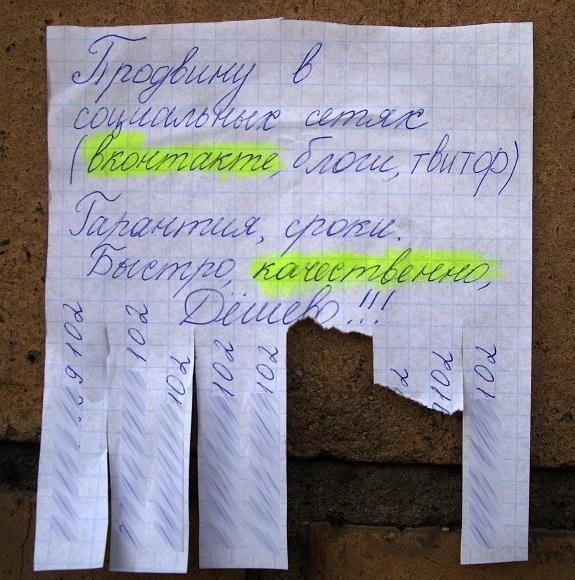 Продвину в
социальных сетях
(вконтакте, блоги, твитор)
Гарантия, сроки.
Быстро, качественно,
Дёшево!!!
102
102
102
102
102
102
102